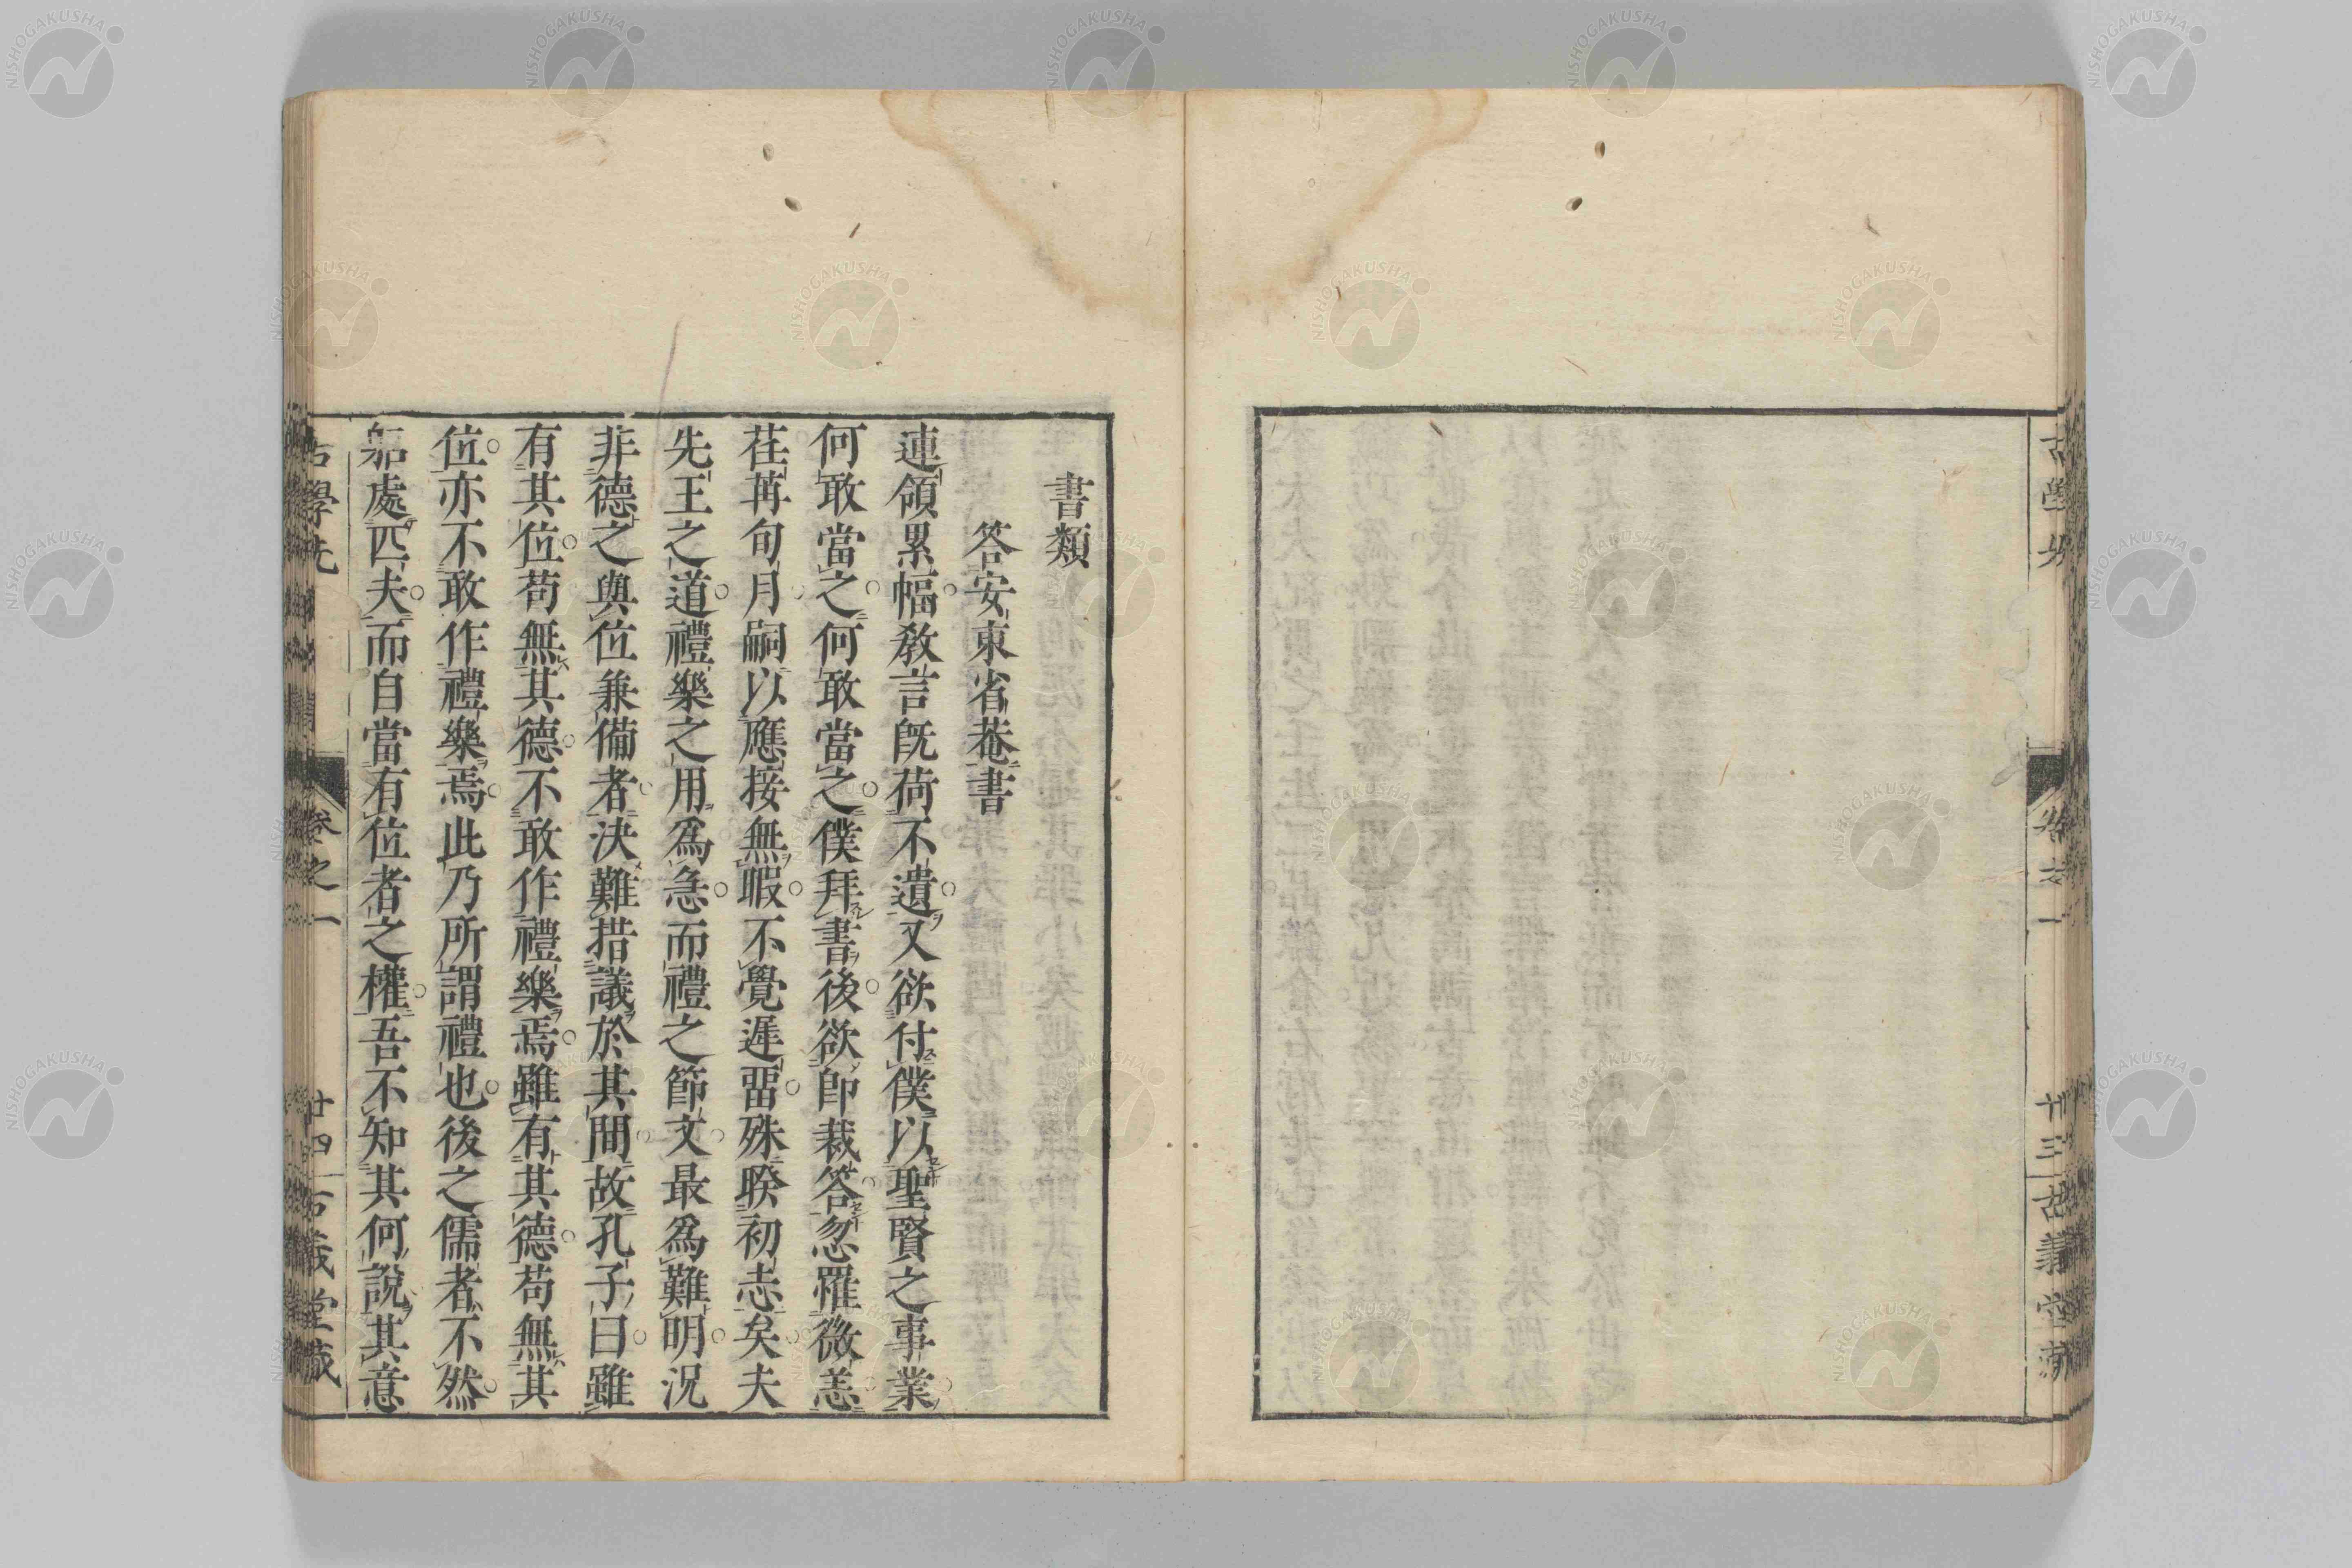 書類
答安東省菴書
連領累幅。教言既荷不遺。又欲付僕以聖賢之事業。
何敢當之。何敢當之。僕拜書後。欲卽裁答。忽罹微恙。
荏苒旬月。嗣以應接無暇。不覺遲畱。殊睽初志矣。夫
先王之道。禮樂之用爲急。而禮之節文。最爲難明。況
非德之與位兼備者。決難措議於其間。故孔子曰。雖
有其位。苟無其德。不敢作禮樂焉。雖有其德。苟無其
位。亦不敢作禮樂焉。此乃所謂禮也。後之儒者不然。
躳處匹夫。而自當有位者之權。吾不知其何說。其意
卷之一
廿四
古義堂藏
卷之一
廿三
古義堂藏
NISHOGAKUSHA